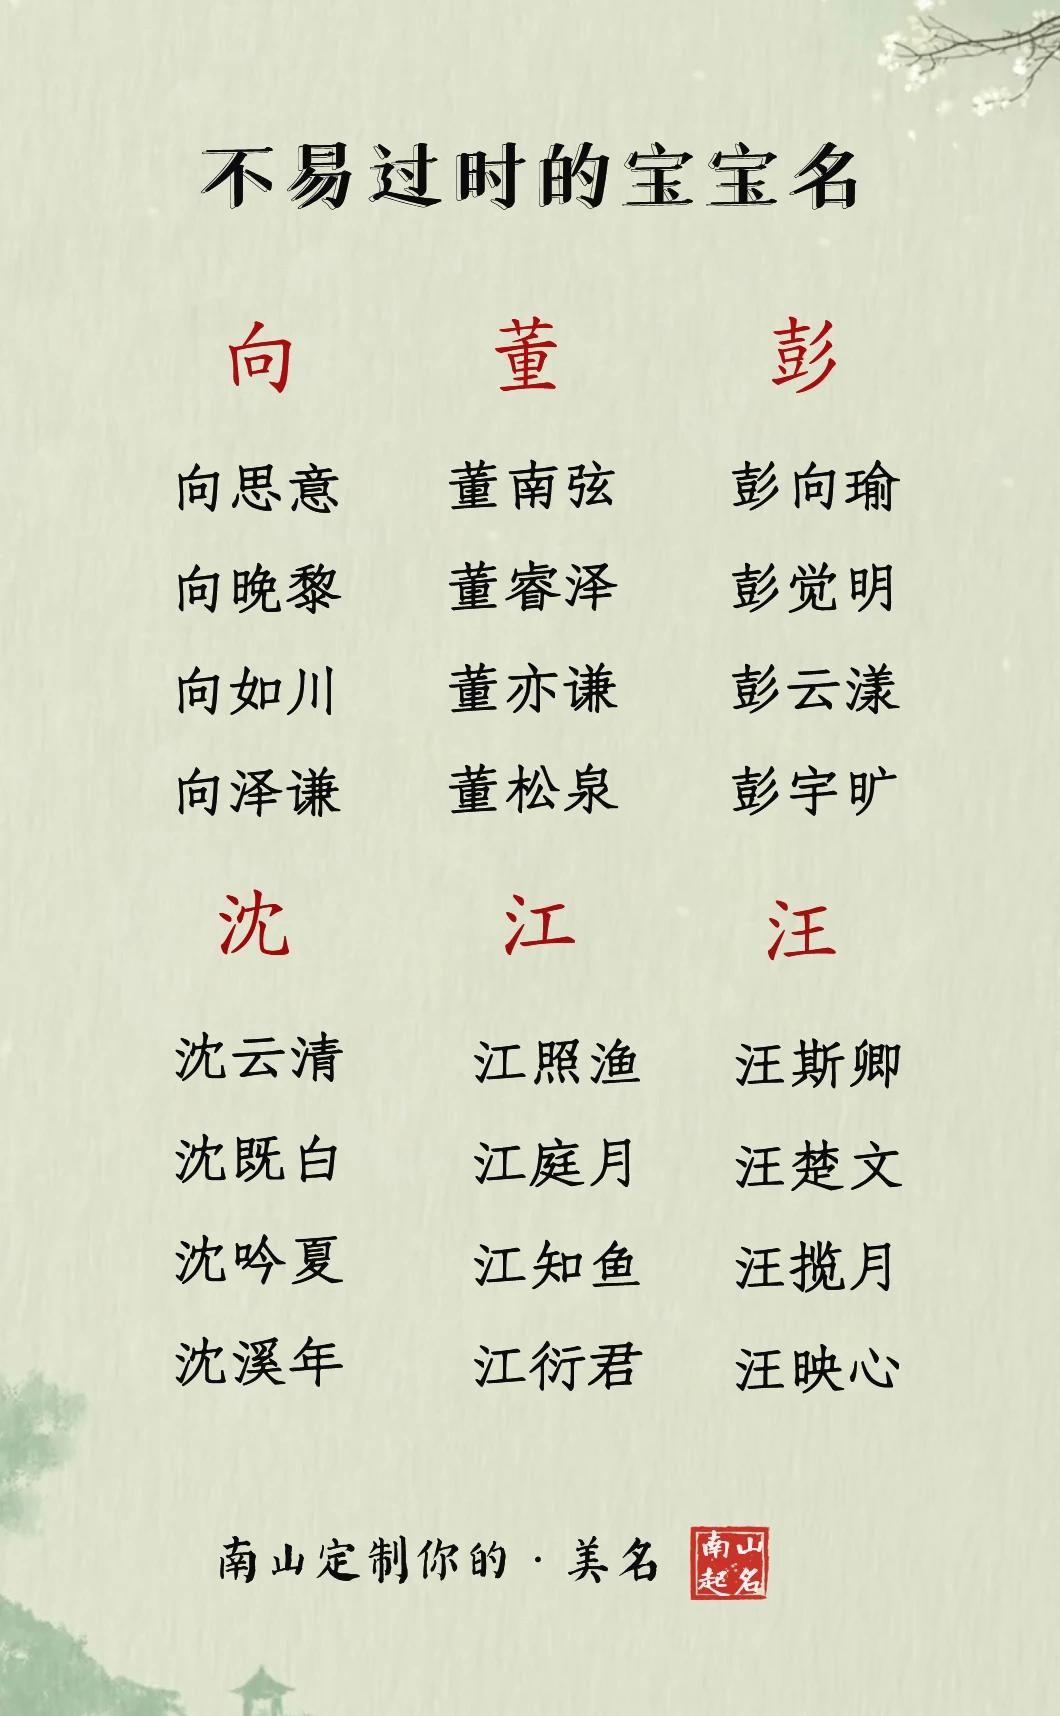 不易过时的宝宝名
向 董 彭
向思意 董南弦 彭向瑜
向晚黎 董睿泽 彭觉明
向如川 董亦谦 彭云漾
向泽谦 董松泉 彭宇旷
沈 江 汪
沈云清 江照渔 汪斯卿
沈既白 江庭月 汪楚文
沈吟夏 江知鱼 汪揽月
沈溪年 江衍君 汪映心
南山定制你的·美名
南山
起名